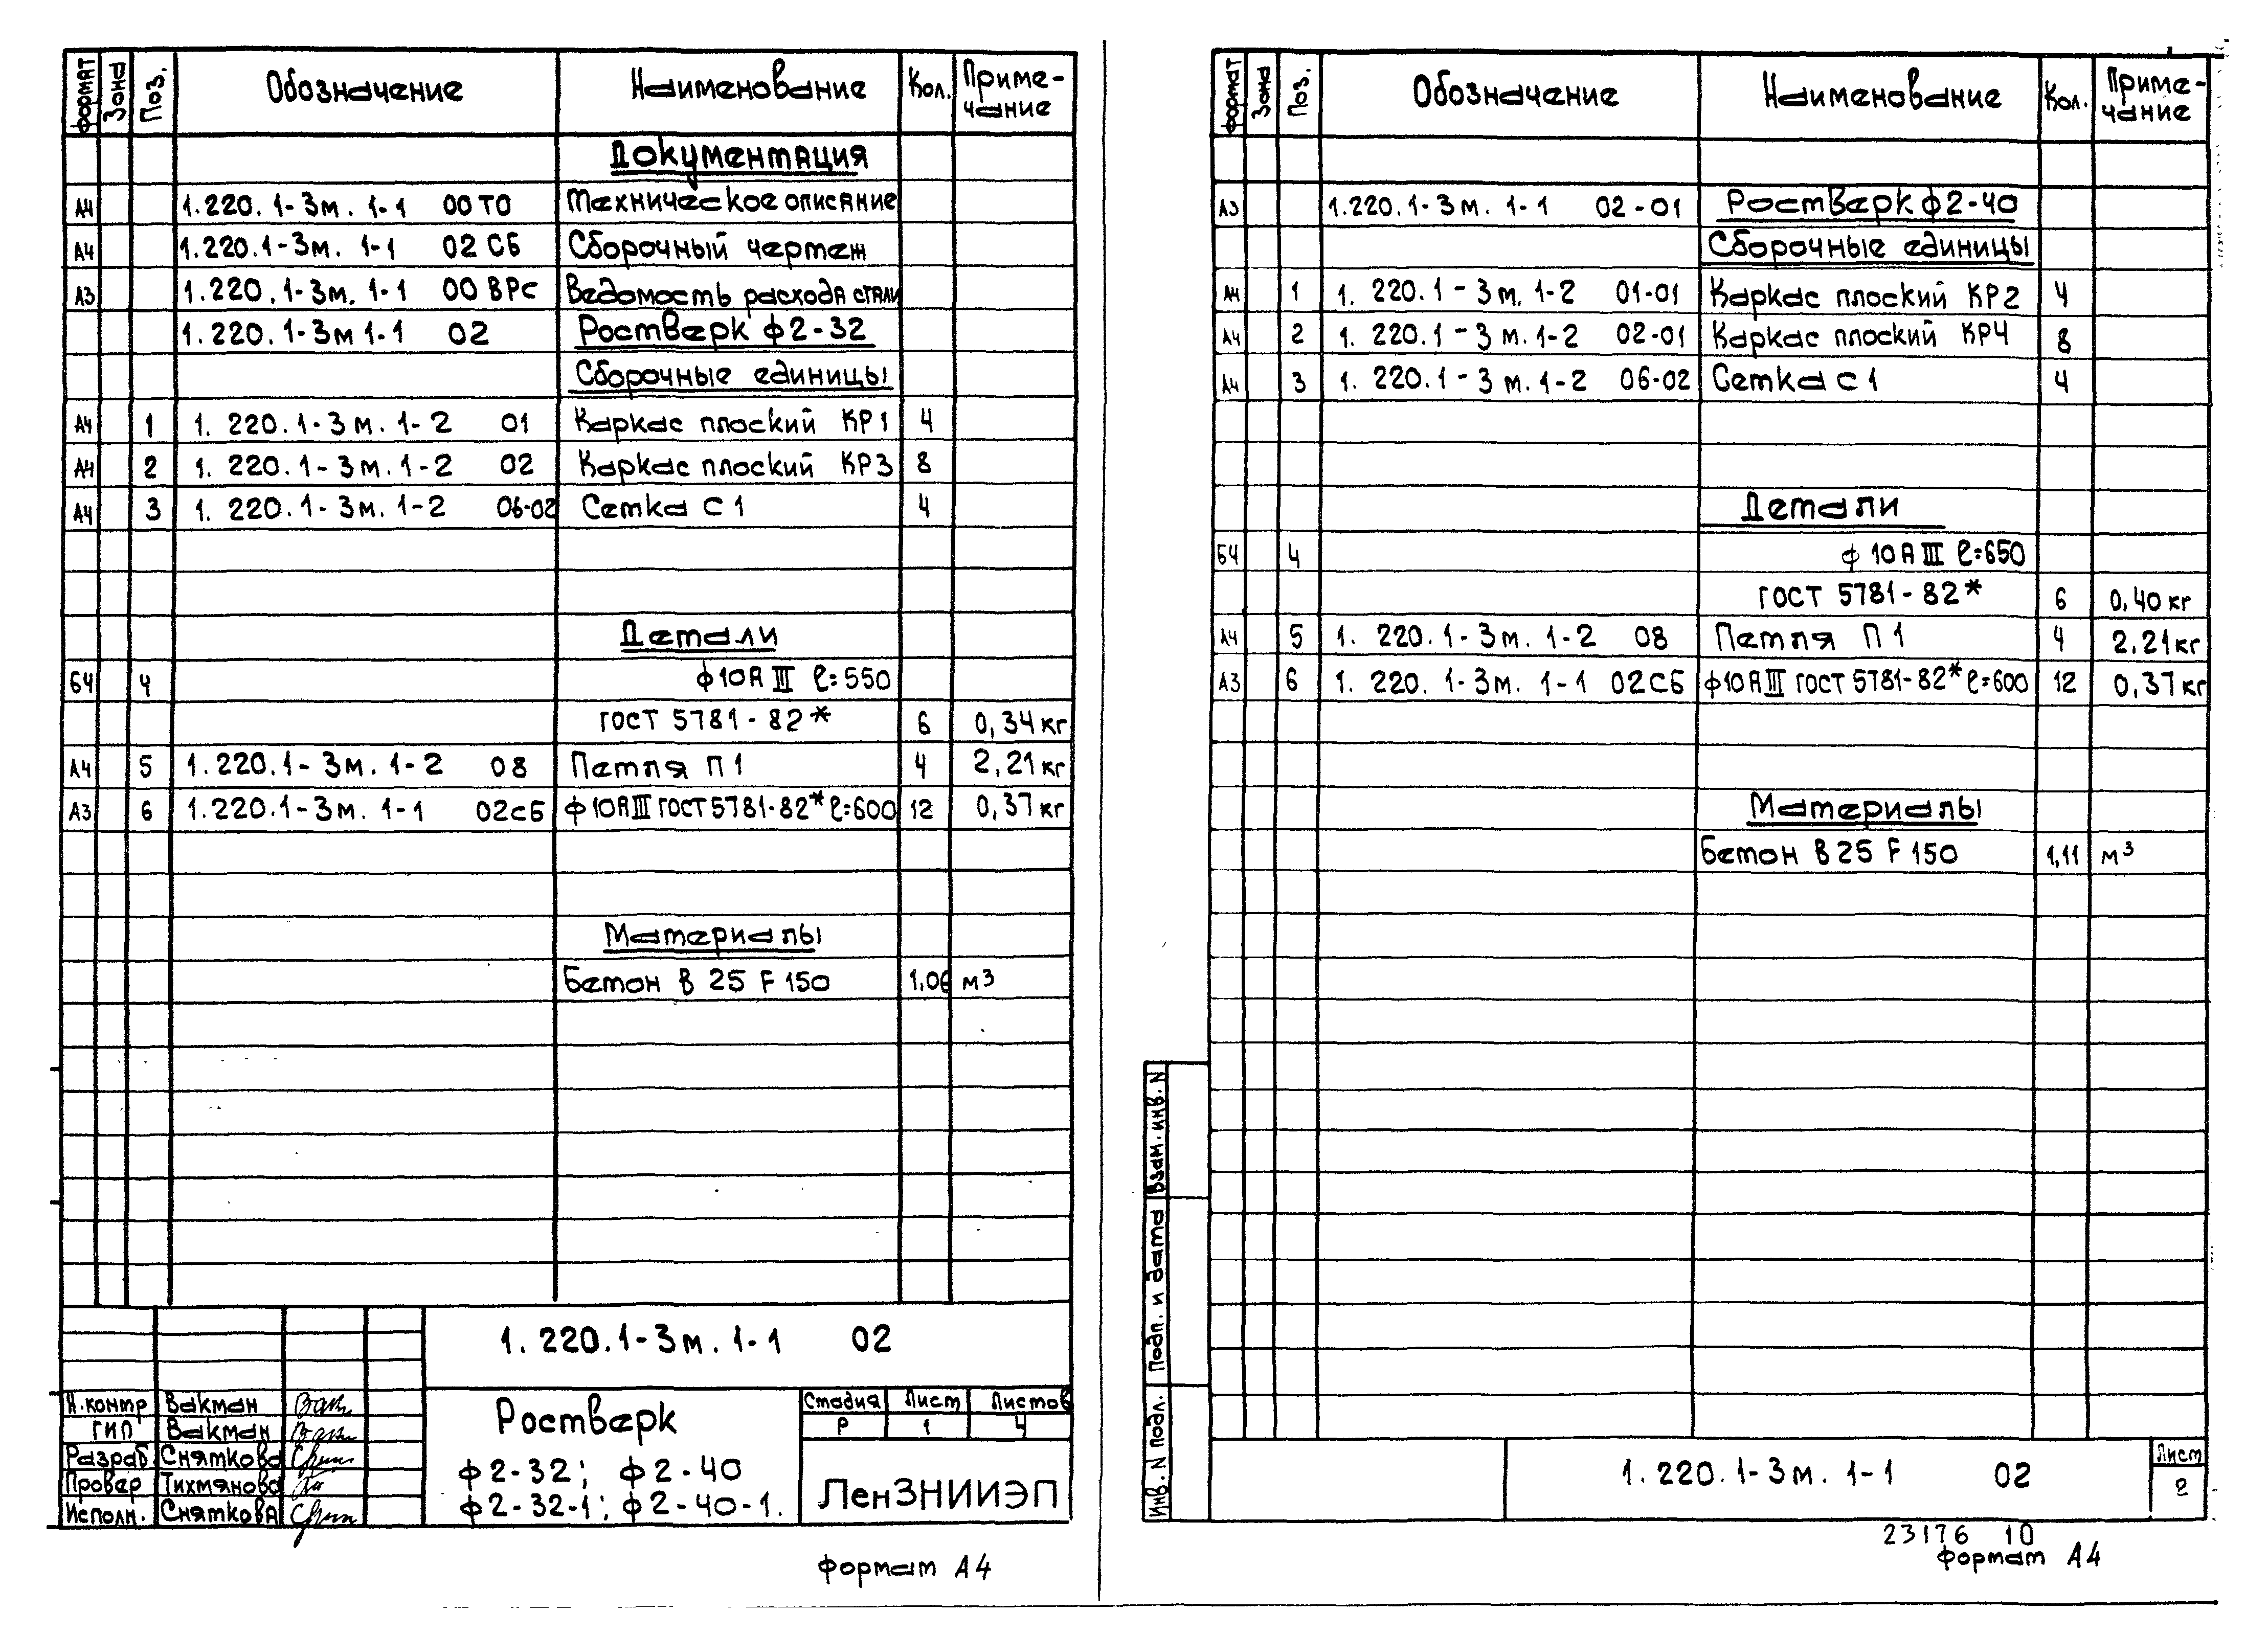 Формат Зона Поз. Обозначение Наименование Кол. Приме-
чание
Документация
А4 1.220.1-3м.1-1 00ТО Техническое описание
А4 1.220.1-3м.1-1 02СБ Сборочный чертеж
А3 1.220.1-3м.1-1 00ВРС Ведомость расхода стали
1.220.1-3м 1-1 02 Ростверк ф2-32
Сборочные единицы
А4 1 1.220.1-3м.1-2 01 Каркас плоский КР1 4
А4 2 1.220.1-3м.1-2 02 Каркас плоский КР3 8
А4 3 1.220.1-3м.1-2 06-02 Сетка С1 4
Детали
Б4 4 ф10АIII ℓ=550
ГОСТ 5781-82* 6 0,34кг
А4 5 1.220.1-3м.1-2 08 Петля П1 4 2,21кг
А3 6 1.220.1-3м.1-1 02сБ ф10АIII ГОСТ5781-82* ℓ=600 12 0,37кг
Материалы
Бетон В 25 F 150 1,06 м³
1.220.1-3м.1-1 02
Н.контр Вакман
ГИП Вакман
Разраб. Сняткова
Провер Тихмянова
Исполн. Сняткова
Ростверк
ф2-32; ф2-40
ф2-32-1; ф2-40-1.
Стадия Лист Листов
Р 1 4
ЛенЗНИИЭП
Формат А4
Формат Зона Поз. Обозначение Наименование Кол. Приме-
чание
А3 1.220.1-3м.1-1 02-01 Ростверк ф2-40
Сборочные единицы
А4 1 1.220.1-3м.1-2 01-01 Каркас плоский КР2 4
А4 2 1.220.1-3м.1-2 02-01 Каркас плоский КР4 8
А4 3 1.220.1-3м.1-2 06-02 Сетка С1 4
Детали
Б4 4 ф10АIII ℓ=650
ГОСТ 5781-82* 6 0,40кг
А4 5 1.220.1-3м.1-2 08 Петля П1 4 2,21кг
А3 6 1.220.1-3м.1-1 02СБ ф10АIII ГОСТ 5781-82* ℓ=600 12 0,37кг
Материалы
Бетон В 25 F 150 1,11 м³
Инв. N подл. Подп. и дата Взам. инв. N
1.220.1-3м.1-1 02
Лист
2
23176 10
Формат А4